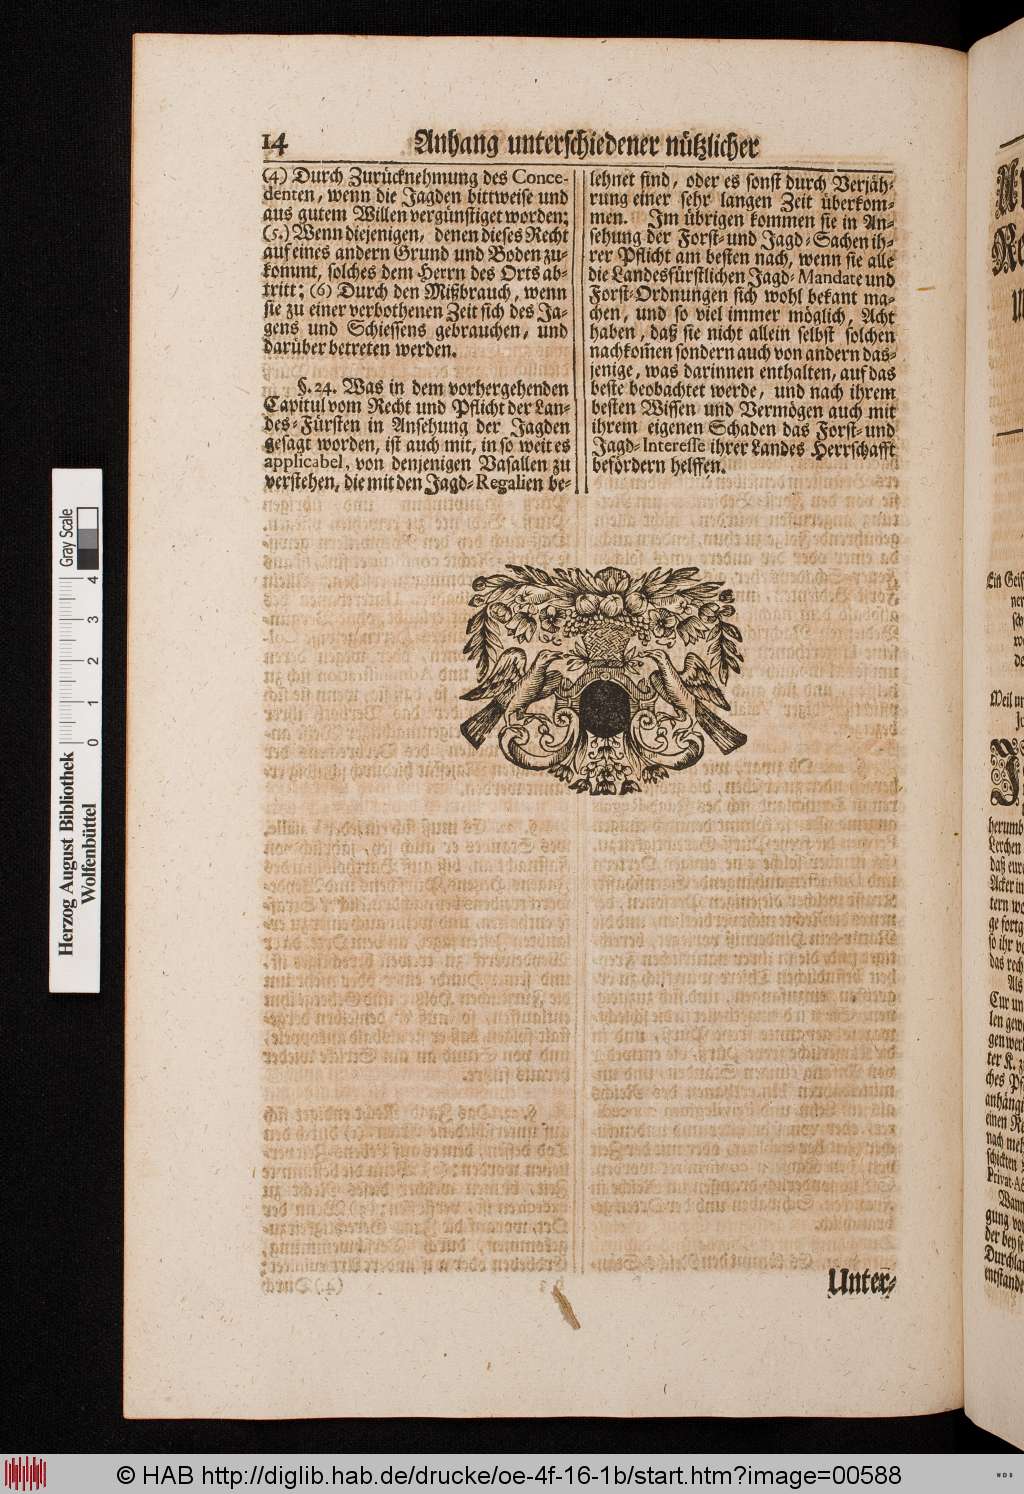 14 Anhang unterschiedener nützlicher
(4) Durch Zurücknehmung des Conce-
denten, wenn die Jagden bittweise und
aus gutem Willen vergünstiget worden;
(5.) Wenn diejenigen, denen dieses Recht
auf eines andern Grund und Boden zu-
kommt, solches dem Herrn des Orts ab-
tritt; (6) Durch den Mißbrauch, wenn
sie zu einer verbothenen Zeit sich des Ja-
gens und Schiessens gebrauchen, und
darüber betreten werden.
§. 24. Was in dem vorhergehenden
Capitul vom Recht und Pflicht der Lan-
des-Fürsten in Ansehung der Jagden
gesagt worden, ist auch mit, in so weit es
applicabel, von denjenigen Vasallen zu
verstehen, die mit den Jagd-Regalien be-
lehnet sind, oder es sonst durch Verjäh-
rung einer sehr langen Zeit überkom-
men. Im übrigen kommen sie in An-
sehung der Forst- und Jagd-Sachen ih-
rer Pflicht am besten nach, wenn sie alle
die Landesfürstlichen Jagd-Mandate und
Forst-Ordnungen sich wohl bekant ma-
chen, und so viel immer möglich, Acht
haben, daß sie nicht allein selbst solchen
nachkom̃en sondern auch von andern das-
jenige, was darinnen enthalten, auf das
beste beobachtet werde, und nach ihrem
besten Wissen und Vermögen auch mit
ihrem eigenen Schaden das Forst- und
Jagd-Interesse ihrer Landes Herrschafft
befördern helffen.
Unter-
Ein Geis
Weil un
herumb
Lerchen
daß eure
Acker in
tern wo
ge fortg
so ihr vo
das rech
Als
Cur un
len gew
gen wer
ter K. z
ches Pf
anhängi
einen Re
nach meh
schickten
Wann
gung vo
der bey se
Durchlau
entstande
Herzog August Bibliothek
Wolfenbüttel
0 1 2 3 4
Gray Scale
© HAB http://diglib.hab.de/drucke/oe-4f-16-1b/start.htm?image=00588